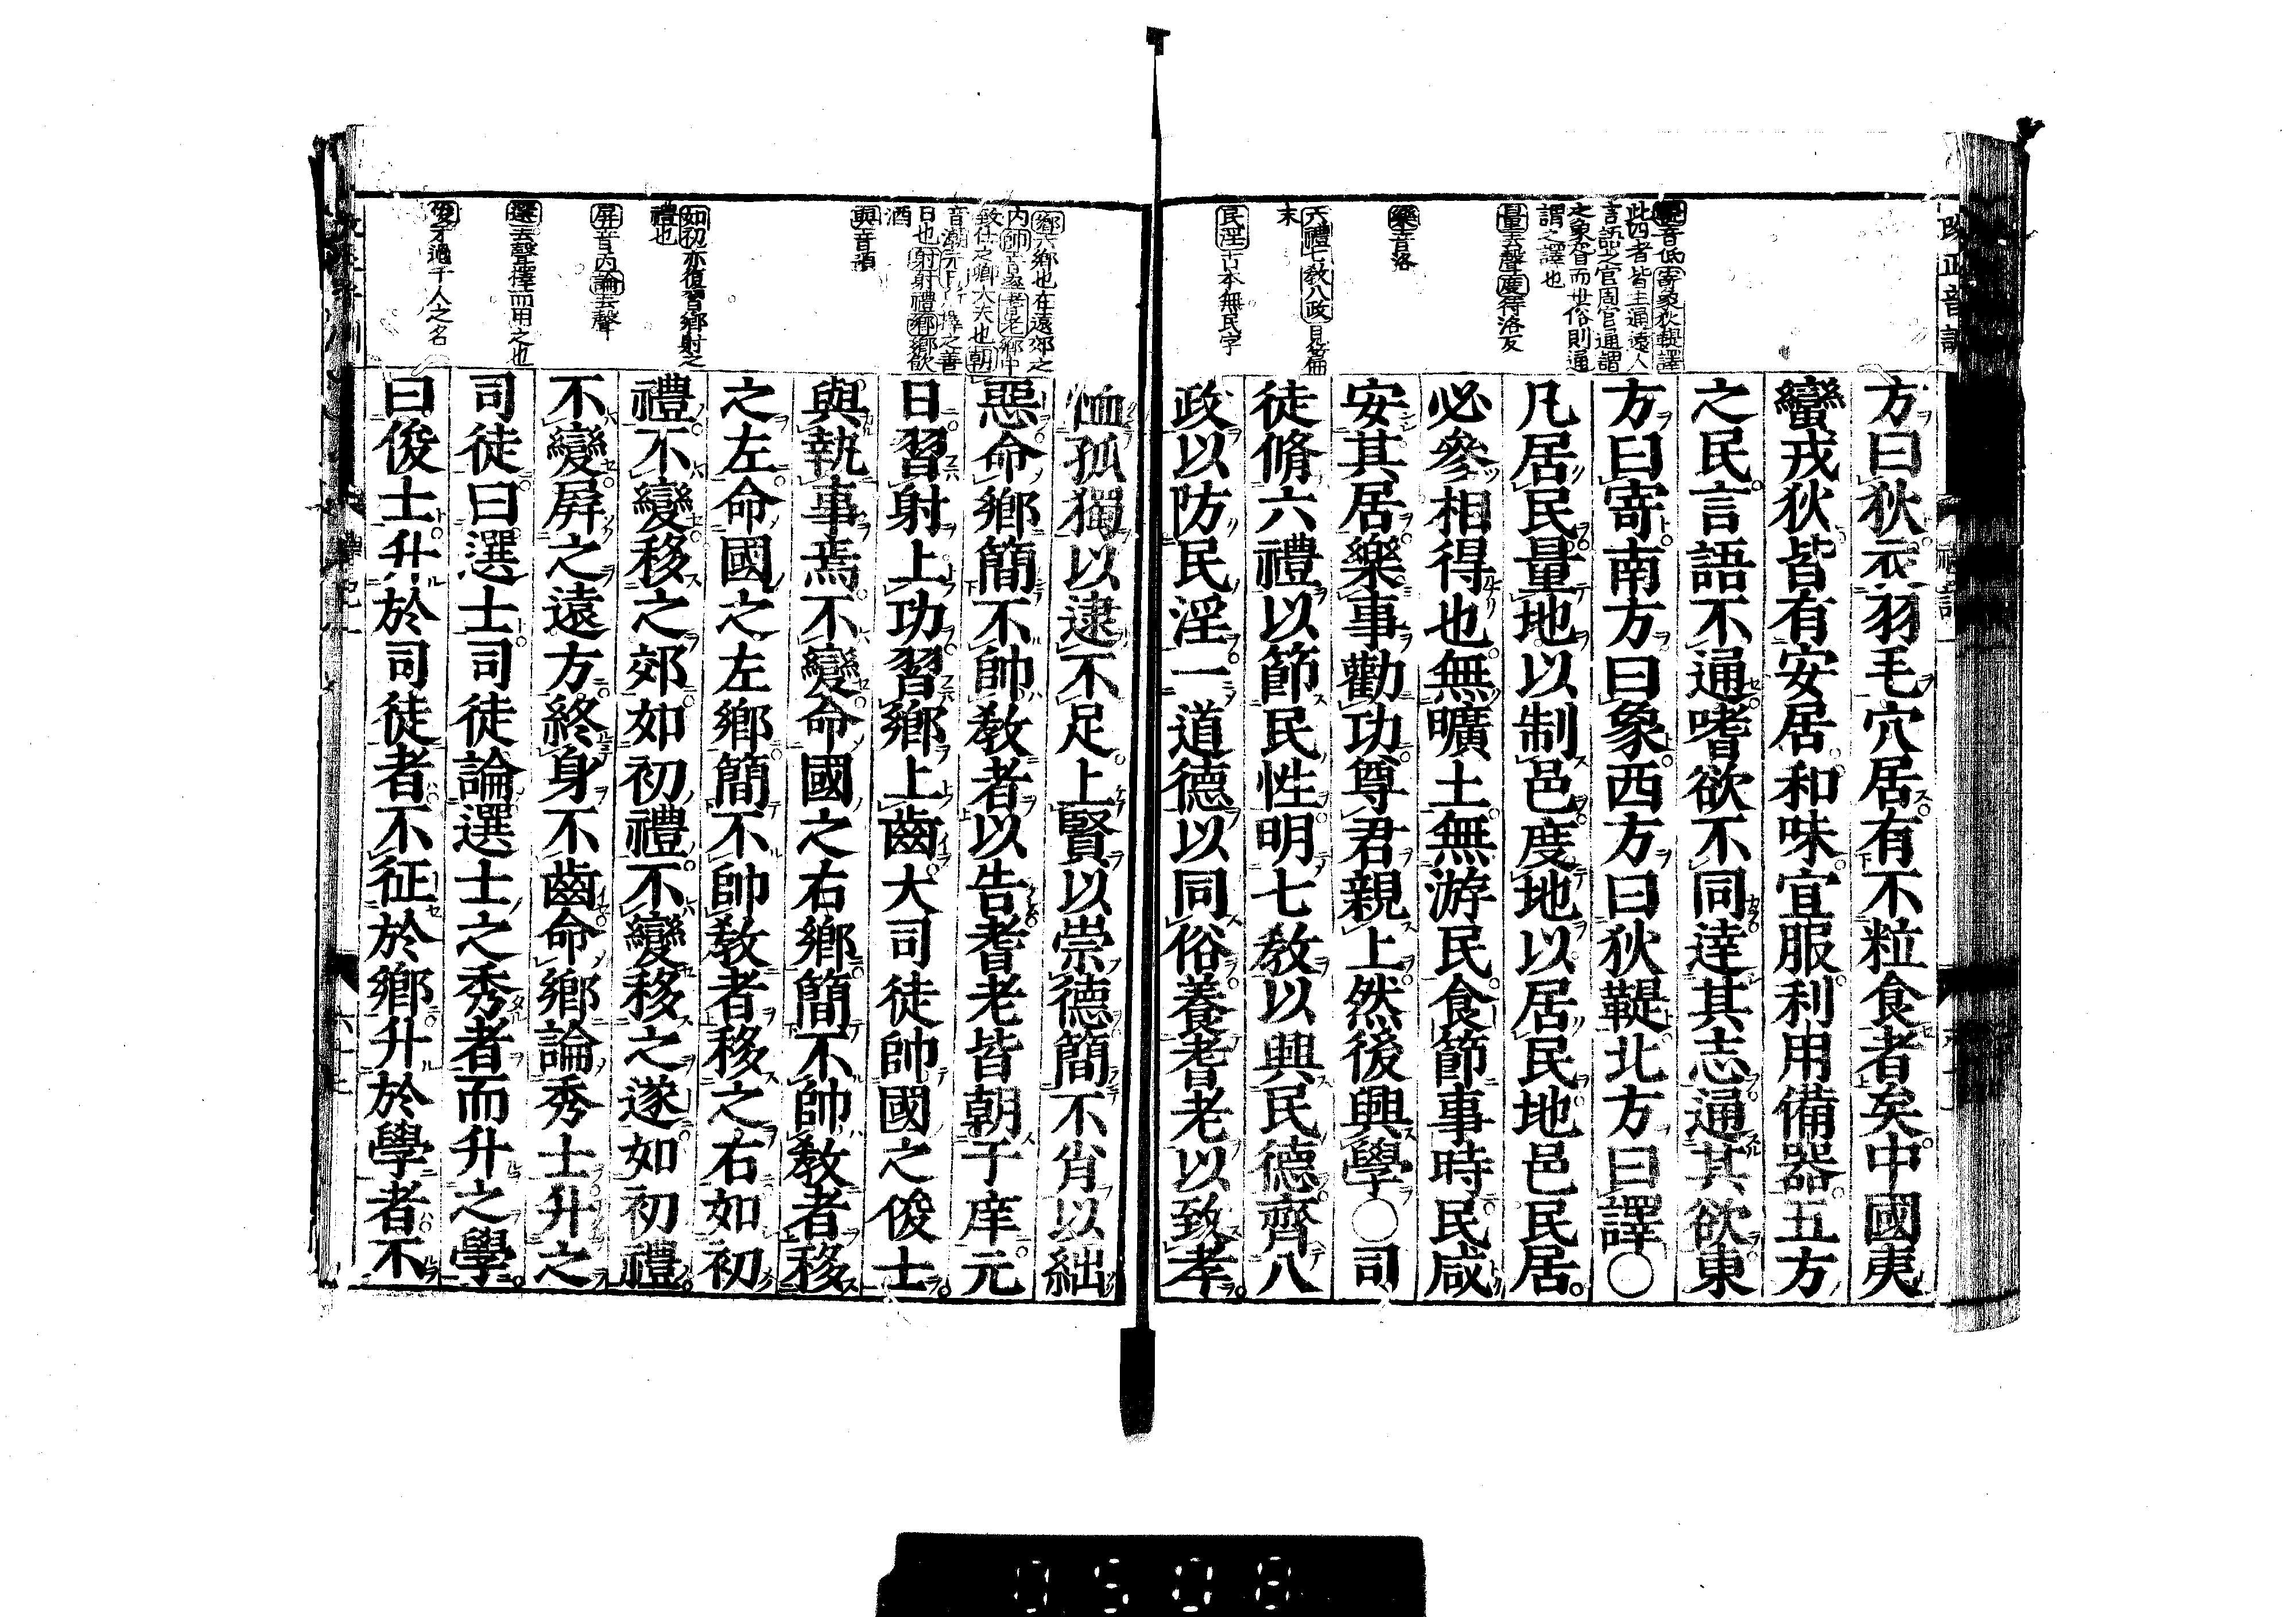 鞮音低寄象狄鞮譯
此四者皆主通遠人
言語之官周官通謂
之象胥而世俗則通
謂之譯也
量去聲度待洛反
樂音洛
六禮七敎八政見篇
末
民淫古本無民字
方曰狄衣羽毛穴居有不粒食者矣中國夷
蠻戎狄皆有安居和味宜服利用備器五方
之民言語不通嗜欲不同達其志通其欲東
方曰寄南方曰象西方曰狄鞮北方曰譯〇
凡居民量地以制邑度地以居民地邑民居
必參相得也無曠土無游民食節事時民咸
安其居樂事勸功尊君親上然後興學〇司
徒脩六禮以節民性明七敎以興民德齊八
政以防民淫一道德以同俗養耆老以致孝
鄉六鄉也在遠郊之
內帥音率耆老鄉中
致仕之卿大夫也朝
日也射射禮鄉鄉飮
酒
與音預
如初亦復習鄉射之
禮也
屛音丙論去聲
選去聲擇而用之也
俊才過千人之名
恤孤獨以逮不足上賢以崇德簡不肖以絀
惡命鄉簡不帥敎者以告耆老皆朝于庠元
日習射上功習鄉上齒大司徒帥國之俊士
與執事焉不變命國之右鄉簡不帥敎者移
之左命國之左鄉簡不帥敎者移之右如初
禮不變移之郊如初禮不變移之遂如初禮
不變屛之遠方終身不齒命鄉論秀士升之
司徒曰選士司徒論選士之秀者而升之學
曰俊士升於司徒者不征於鄉升於學者不
0508